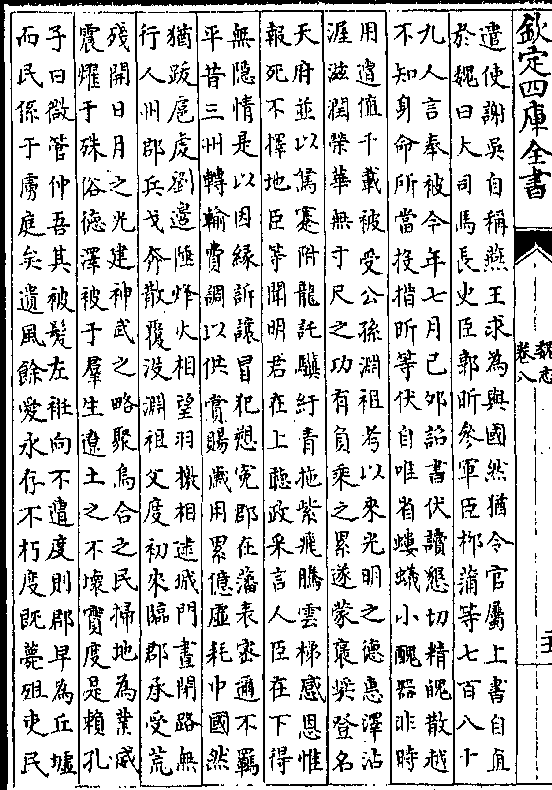 欽定四庫全書
魏志
卷八
遣使謝吴自稱燕王求為與國然猶令官屬上書自直
於魏曰大司馬長史臣郭昕參軍臣栁蒲等七百八十
九人言奉被今年七月己夘詔書伏讀懇切精魄散越
不知身命所當投措昕等伏自唯省螻蟻小醜器非時
用遭值千載被受公孫淵祖考以來光明之德惠澤沾
渥滋潤榮華無寸尺之功有負乘之累遂蒙襃奬登名
天府並以駑蹇附龍託驥紆青拖紫飛騰雲梯感恩惟
報死不擇地臣等聞明君在上聴政采言人臣在下得
無隠情是以因縁訴讓冒犯愬寃郡在藩表宻邇不羈
平昔三州轉輸費調以供賞賜嵗用累億虚耗中國然
猶跋扈虔劉邉陲烽火相望羽檄相逮城門晝閉路無
行人州郡兵戈奔散覆没淵祖父度初來臨郡承受荒
殘開日月之光建神武之略聚烏合之民掃地為業威
震耀于殊俗德澤被于羣生遼土之不壞實度是頼孔
子曰微管仲吾其被髪左衽向不遭度則郡早為丘墟
而民係于虜庭矣遺風餘愛永存不朽度既薨殂吏民